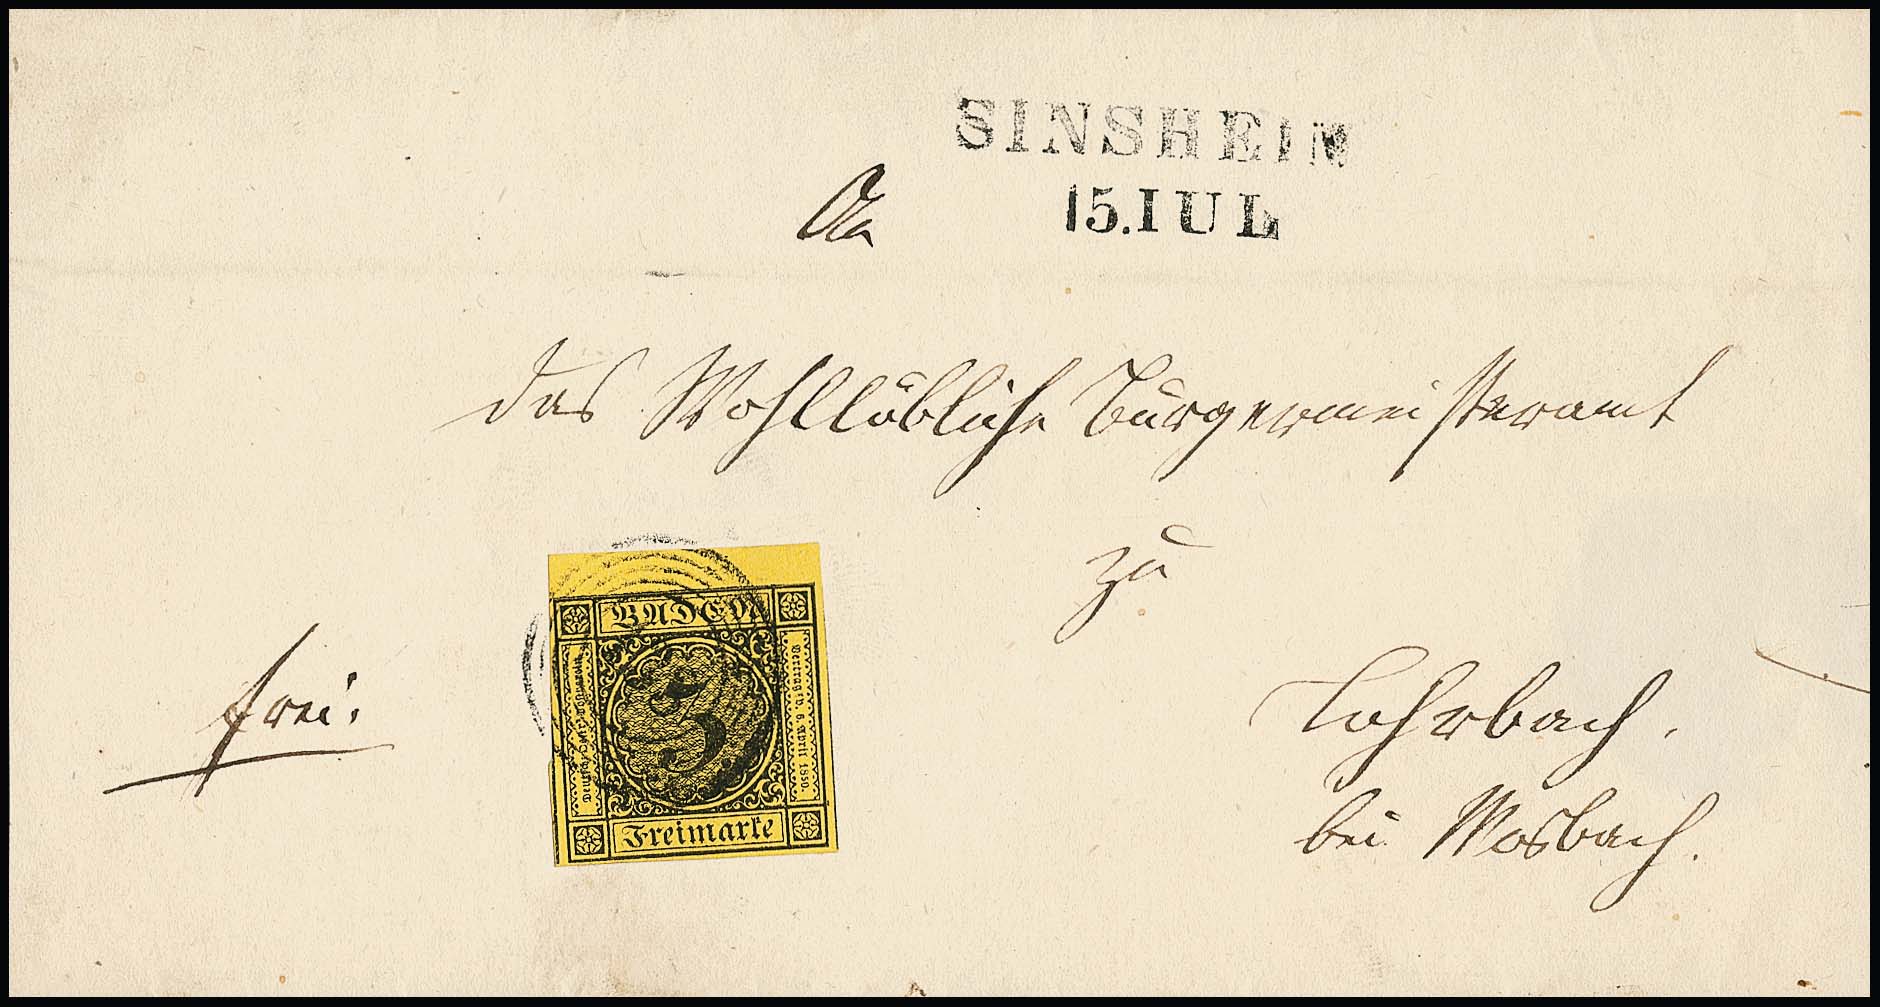 SINSHEIM
15. IUL
An
das Wohllöbliche Bürgermeisteramt
zu
frei.
BADEN
Deutsch-Östr. Postverein
3
Vertrag v. 6. April 1850.
Freimarke
Lohrbach.
bei Mosbach.